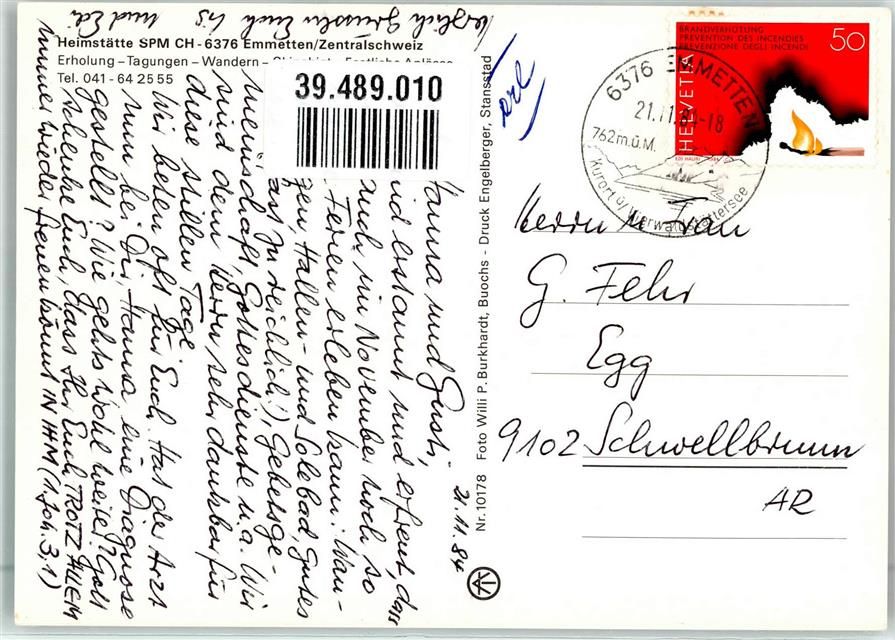 Heimstätte SPM CH-6376 Emmetten/Zentralschweiz
Erholung – Tagungen – Wandern –
Tel. 041 - 64 25 55
39.489.010
21.11.84
Hanna und Gusti,
sind erstaunt und erfreut, dass
auch im November noch so
Ferien erleben kann: Wan-
gen, Hallen- und Solebad, gutes
fast zu reichlich!), Gebetsge-
meinschaft, Gottesdienste u.a. Wir
sind dem Herrn sehr dankbar für
diese stillen Tage.
Wir beten oft für Euch. Hat der Arzt
nun bei Dir, Hanna, eine Diagnose
gestellt? Wie gehts wohl weiter? Gott
schenke Euch, dass Ihr Euch TROTZ ALLEM
immer wieder freuen könnt IN IHM (1. Joh. 3,1)
Herzlich grüssen Euch
und Edi
Nr. 10178 Foto Willi P. Burkhardt, Buochs - Druck Engelberger, Stansstad
BRANDVERHÜTUNG
PREVENTION DES INCENDIES
PREVENZIONE DEGLI INCENDI
50
HELVETIA
6376 EMMETTEN
21.11.84-18
762 m.ü.M.
Kurort ü/Vierwaldstättersee
Herrn u. Frau
G. Fehr
Egg
9102 Schwellbrunn
AR